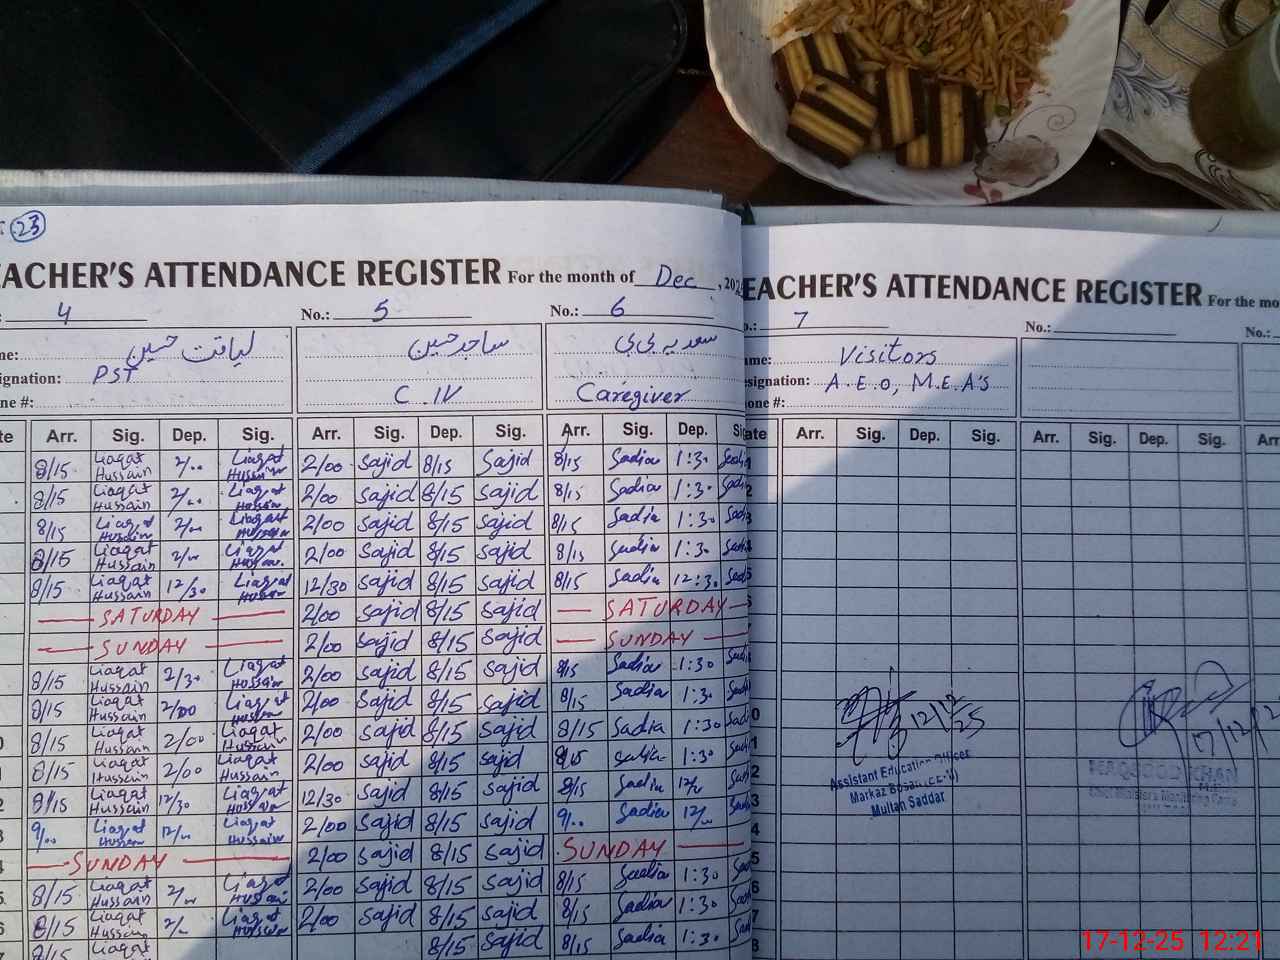 23
TEACHER'S ATTENDANCE REGISTER For the month of Dec, 202
4 No.: 5 No.: 6
لیاقت حسین ساجد حسین سعدیہ بی بی
signation: PST C.IV Caregiver
ne #:
Arr. Sig. Dep. Sig. Arr. Sig. Dep. Sig. Arr. Sig. Dep. Sig
8/15 Liaqat Hussain 2/00 Liaqat Hussain 2/00 Sajid 8/15 Sajid 8/15 Sadia 1:30 Sadia
8/15 Liaqat Hussain 2/00 Liaqat Hussain 2/00 Sajid 8/15 Sajid 8/15 Sadia 1:30 Sadi
8/15 Liaqat Hussain 2/00 Liaqat Hussain 2/00 Sajid 8/15 Sajid 8/15 Sadia 1:30 Sad
8/15 Liaqat Hussain 2/00 Liaqat Hussain 2/00 Sajid 8/15 Sajid 8/15 Sadia 1:30 Sadi
8/15 Liaqat Hussain 12/30 Liaqat Hussain 12/30 Sajid 8/15 Sajid 8/15 Sadia 12:30 Sad
SATURDAY 2/00 Sajid 8/15 Sajid SATURDAY
SUNDAY 2/00 Sajid 8/15 Sajid SUNDAY
8/15 Liaqat Hussain 2/30 Liaqat Hussain 2/00 Sajid 8/15 Sajid 8/15 Sadia 1:30 Sadi
8/15 Liaqat Hussain 2/00 Liaqat Hussain 2/00 Sajid 8/15 Sajid 8/15 Sadia 1:30 Sad
8/15 Liaqat Hussain 2/00 Liaqat Hussain 2/00 Sajid 8/15 Sajid 8/15 Sadia 1:30 Sad
8/15 Liaqat Hussain 2/00 Liaqat Hussain 2/00 Sajid 8/15 Sajid 8/15 Sadia 1:30 Sad
8/15 Liaqat Hussain 12/30 Liaqat Hussain 12/30 Sajid 8/15 Sajid 8/15 Sadia 12/00 Sad
9/00 Liaqat Hussain 12/00 Liaqat Hussain 2/00 Sajid 8/15 Sajid 9/00 Sadia 12/00 Sad
SUNDAY 2/00 Sajid 8/15 Sajid SUNDAY
8/15 Liaqat Hussain 2/00 Liaqat Hussain 2/00 Sajid 8/15 Sajid 8/15 Sadia 1:30 Sad
8/15 Liaqat Hussain 2/00 Liaqat Hussain 2/00 Sajid 8/15 Sajid 8/15 Sadia 1:30 Sad
8/15 Liaqat 8/15 Sajid 8/15 Sadia 1:30 Sad
EACHER'S ATTENDANCE REGISTER For the mo
7 No.: No.:
ame: Visitors
esignation: A.E.O, M.E.A's
hone #:
ate Arr. Sig. Dep. Sig. Arr. Sig. Dep. Sig. Arr
12/12/25
17/12/2
Assistant Education Officer
Markaz Bosan
Multan Saddar
KHAN
17-12-25 12:21